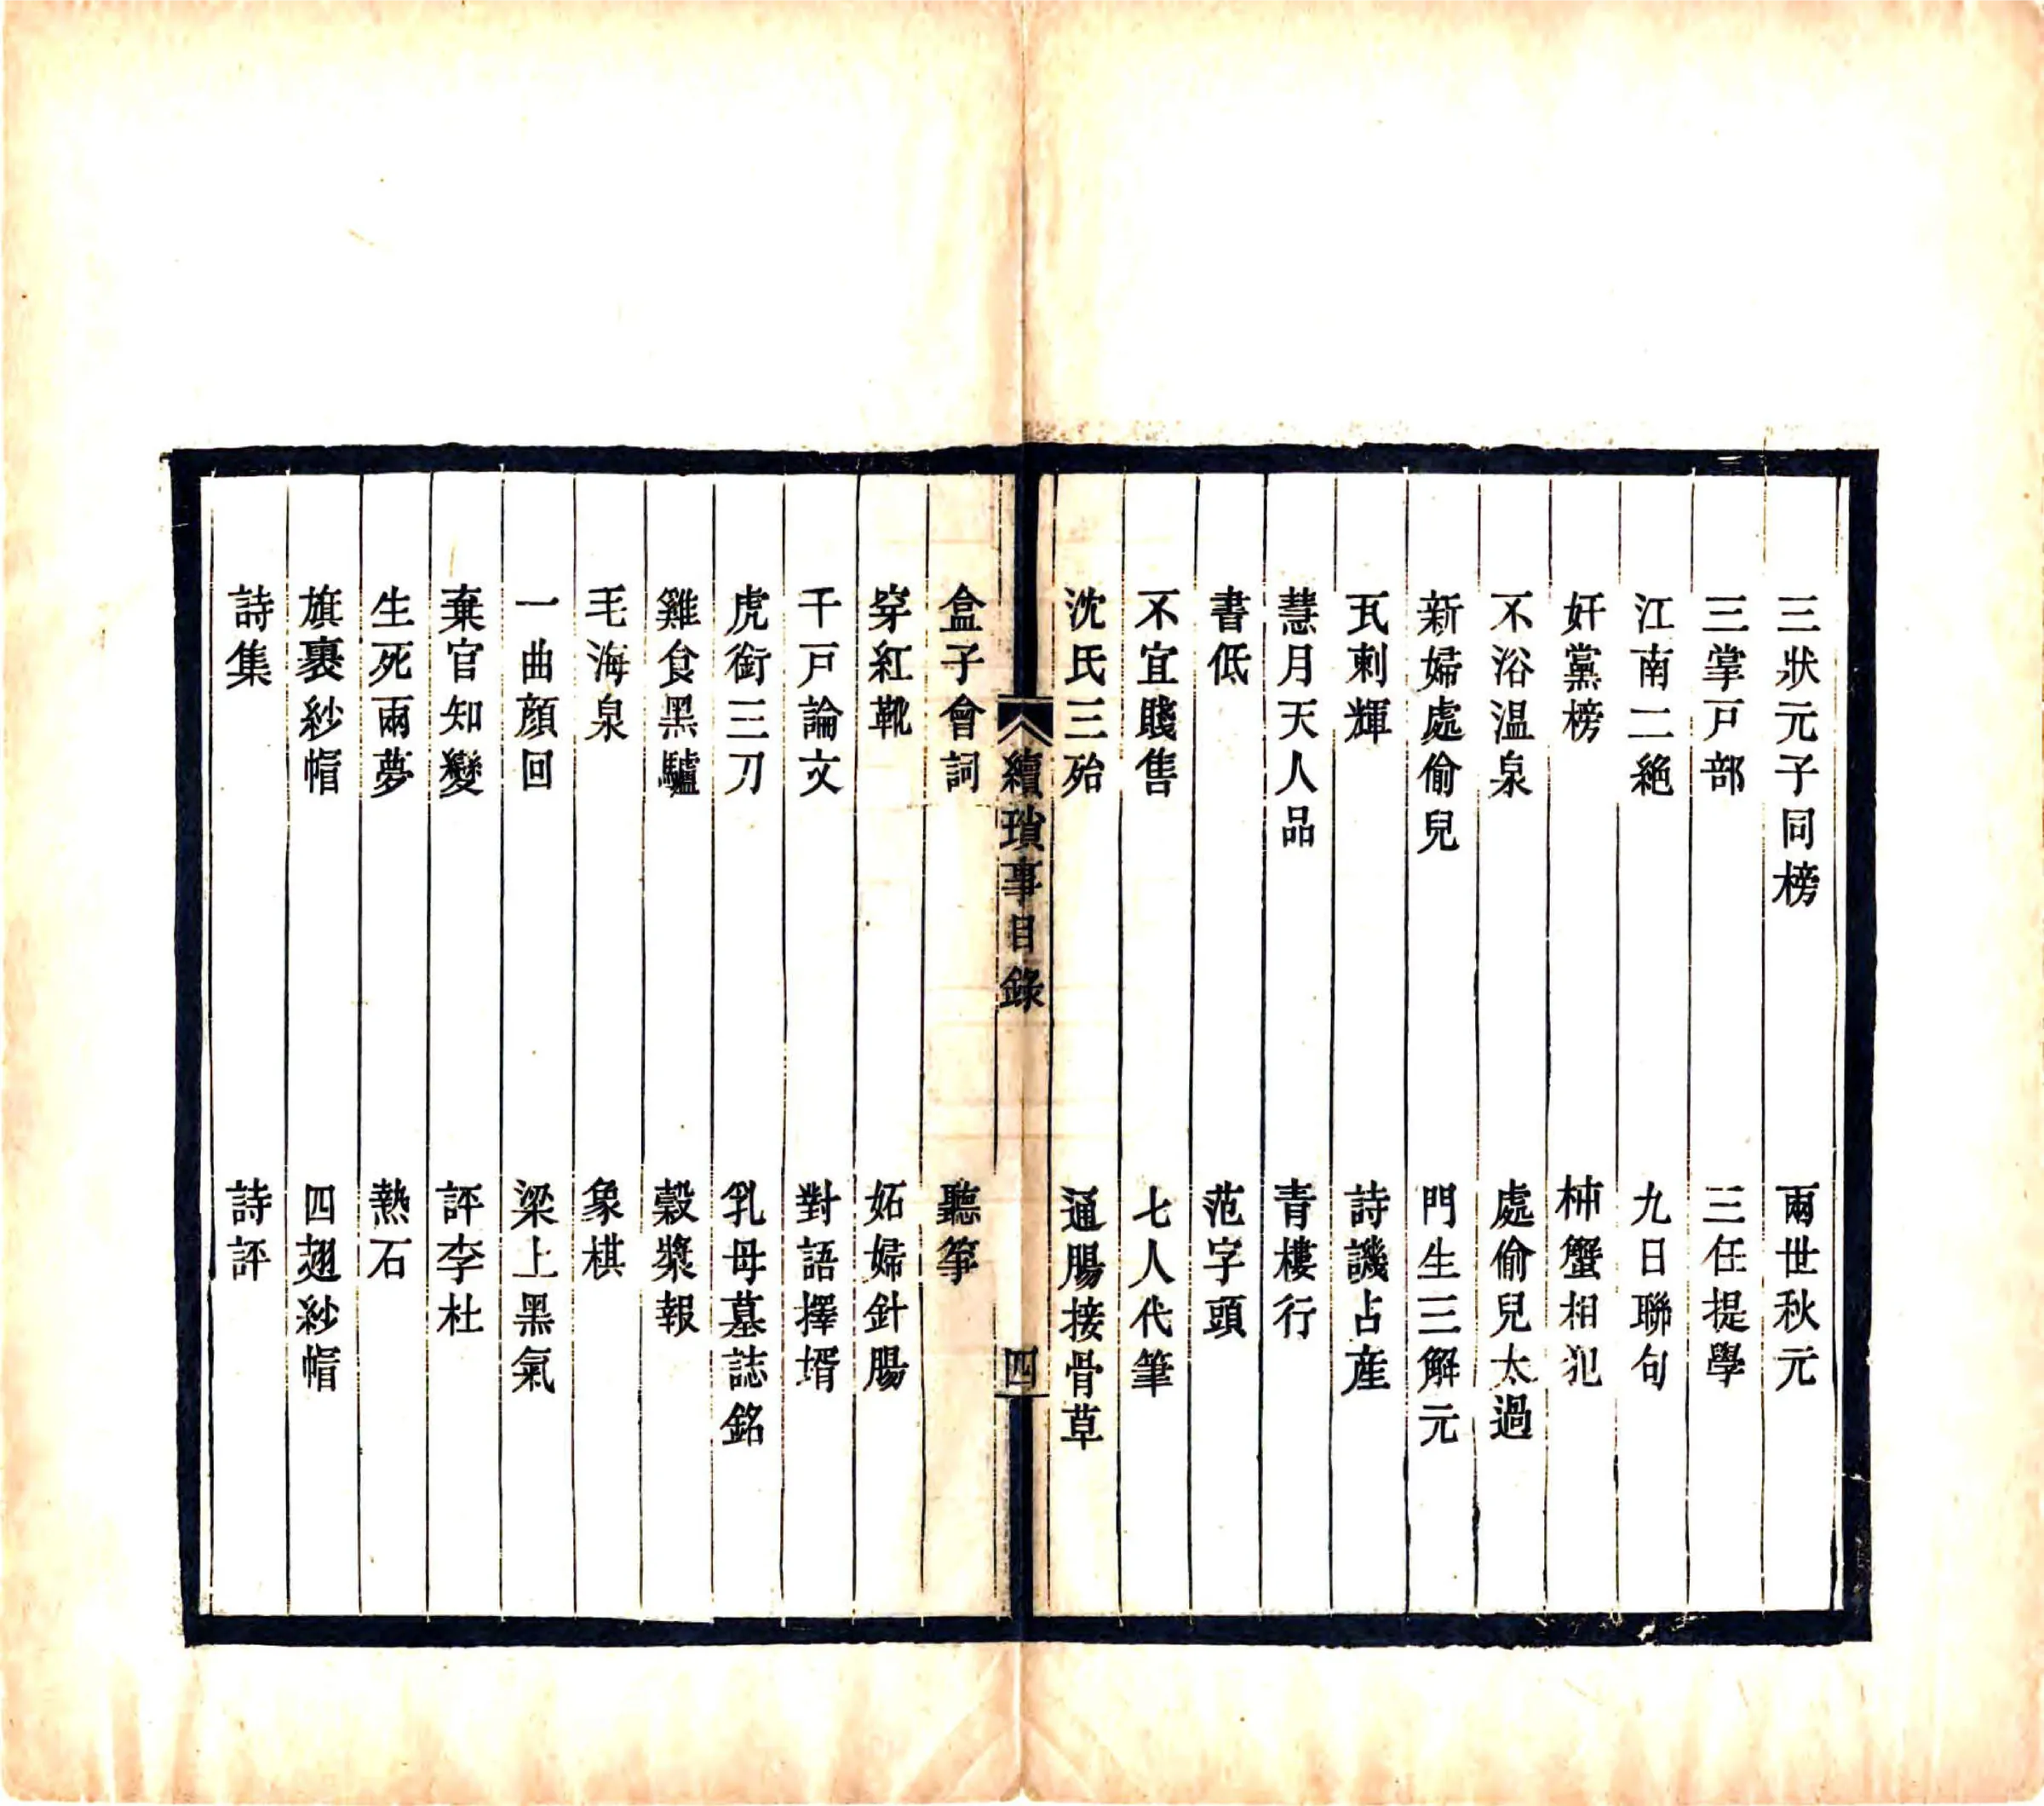 三狀元子同榜　兩世秋元
三掌戸部　三任提學
江南二絶　九日聯句
奸黨榜　柿蟹相犯
不浴温泉　處偷兒太過
新婦處偷兒　門生三解元
瓦剌輝　詩譏占產
慧月天人品　青樓行
書低　范字頭
不宜賤售　七人代筆
沈氏三殆　通腸接骨草
續瑣事目錄　四
盒子會詞　聽筝
穿紅靴　妬婦針腸
千戸論文　對語擇壻
虎銜三刀　乳母墓誌銘
雞食黑驢　穀漿報
毛海泉　象棋
一曲顔回　梁上黑氣
棄官知變　評李杜
生死兩夢　熱石
旗裹紗帽　四翅紗帽
詩集　詩評